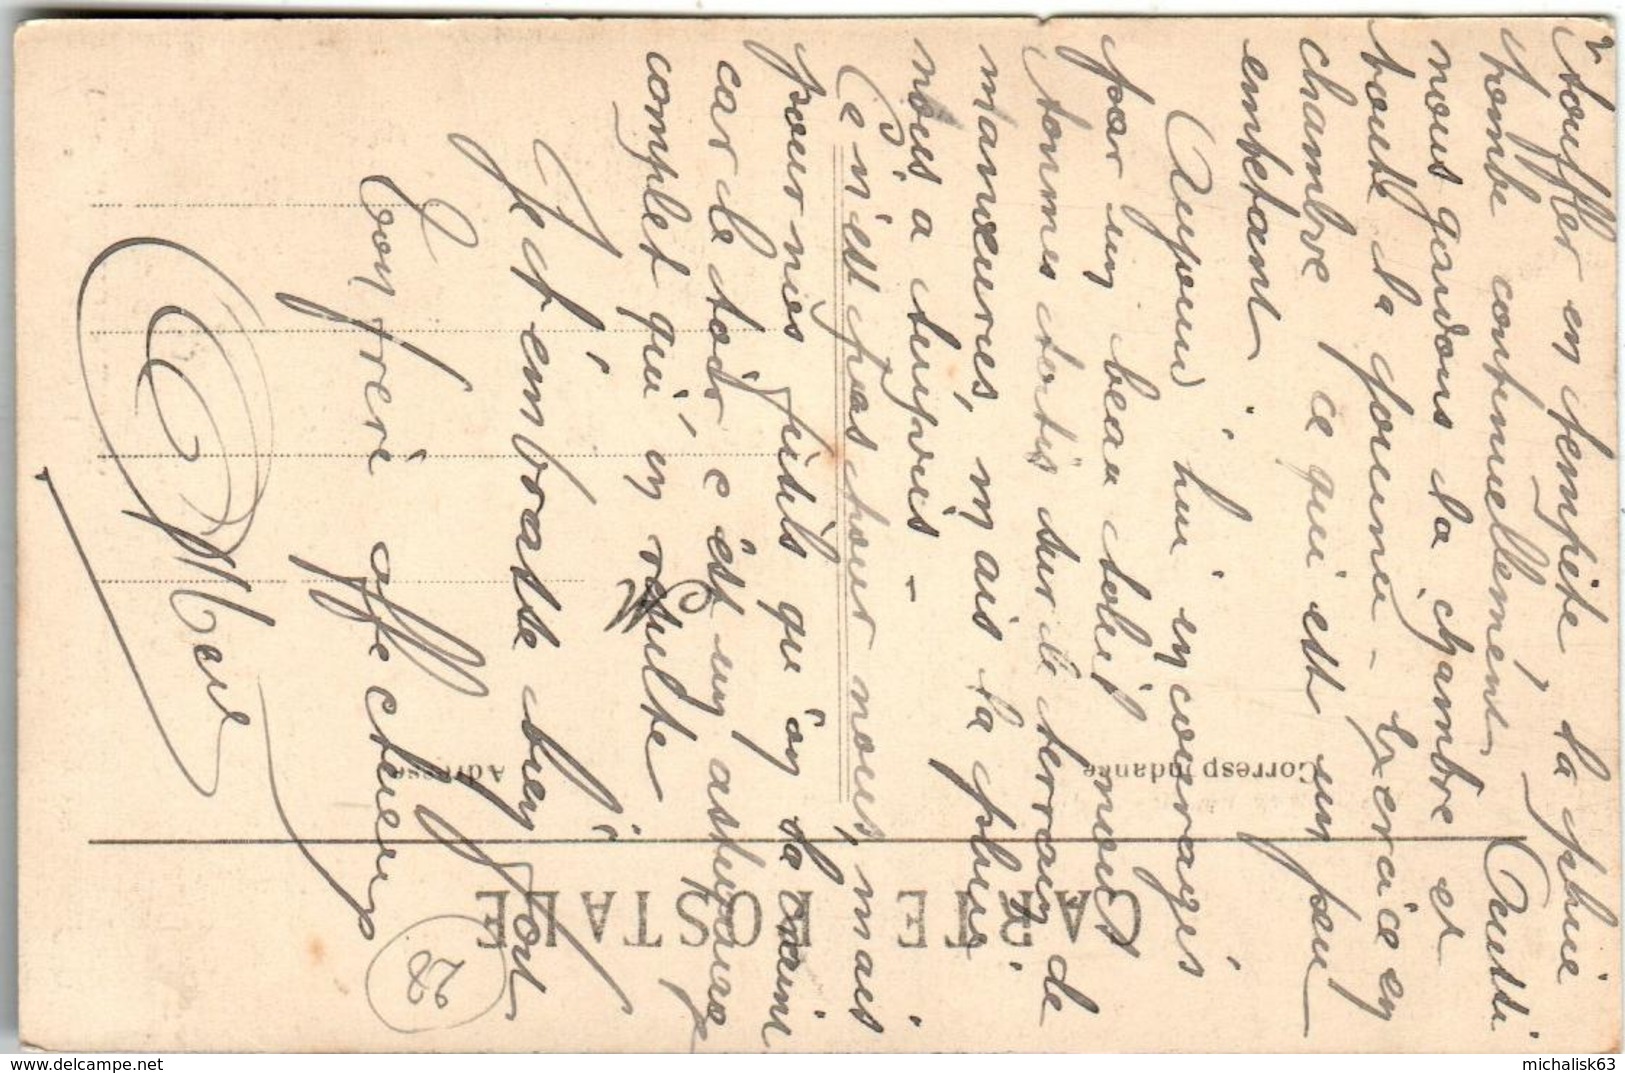 étouffer en tempête la pluie
tombe continuellement. Aussi
nous gardons la chambre et
toute la journée - Exercice en
chambre ce qui est un peu
embetant.
Aujourd'hui encouragés
par un beau soleil nous
sommes sortis sur le terrain de
manœuvres, mais la pluie
nous a surpris -
Ce n'est pas pour nous, mais
pour nos fusils qu'on la craint
car le soir c'est un astiquage
complet qui en résulte
Je t'embrasse bien fort
Ton frère affectueux
Marcel
M
28
CARTE POSTALE
Correspondance
Adresse
michalisk63